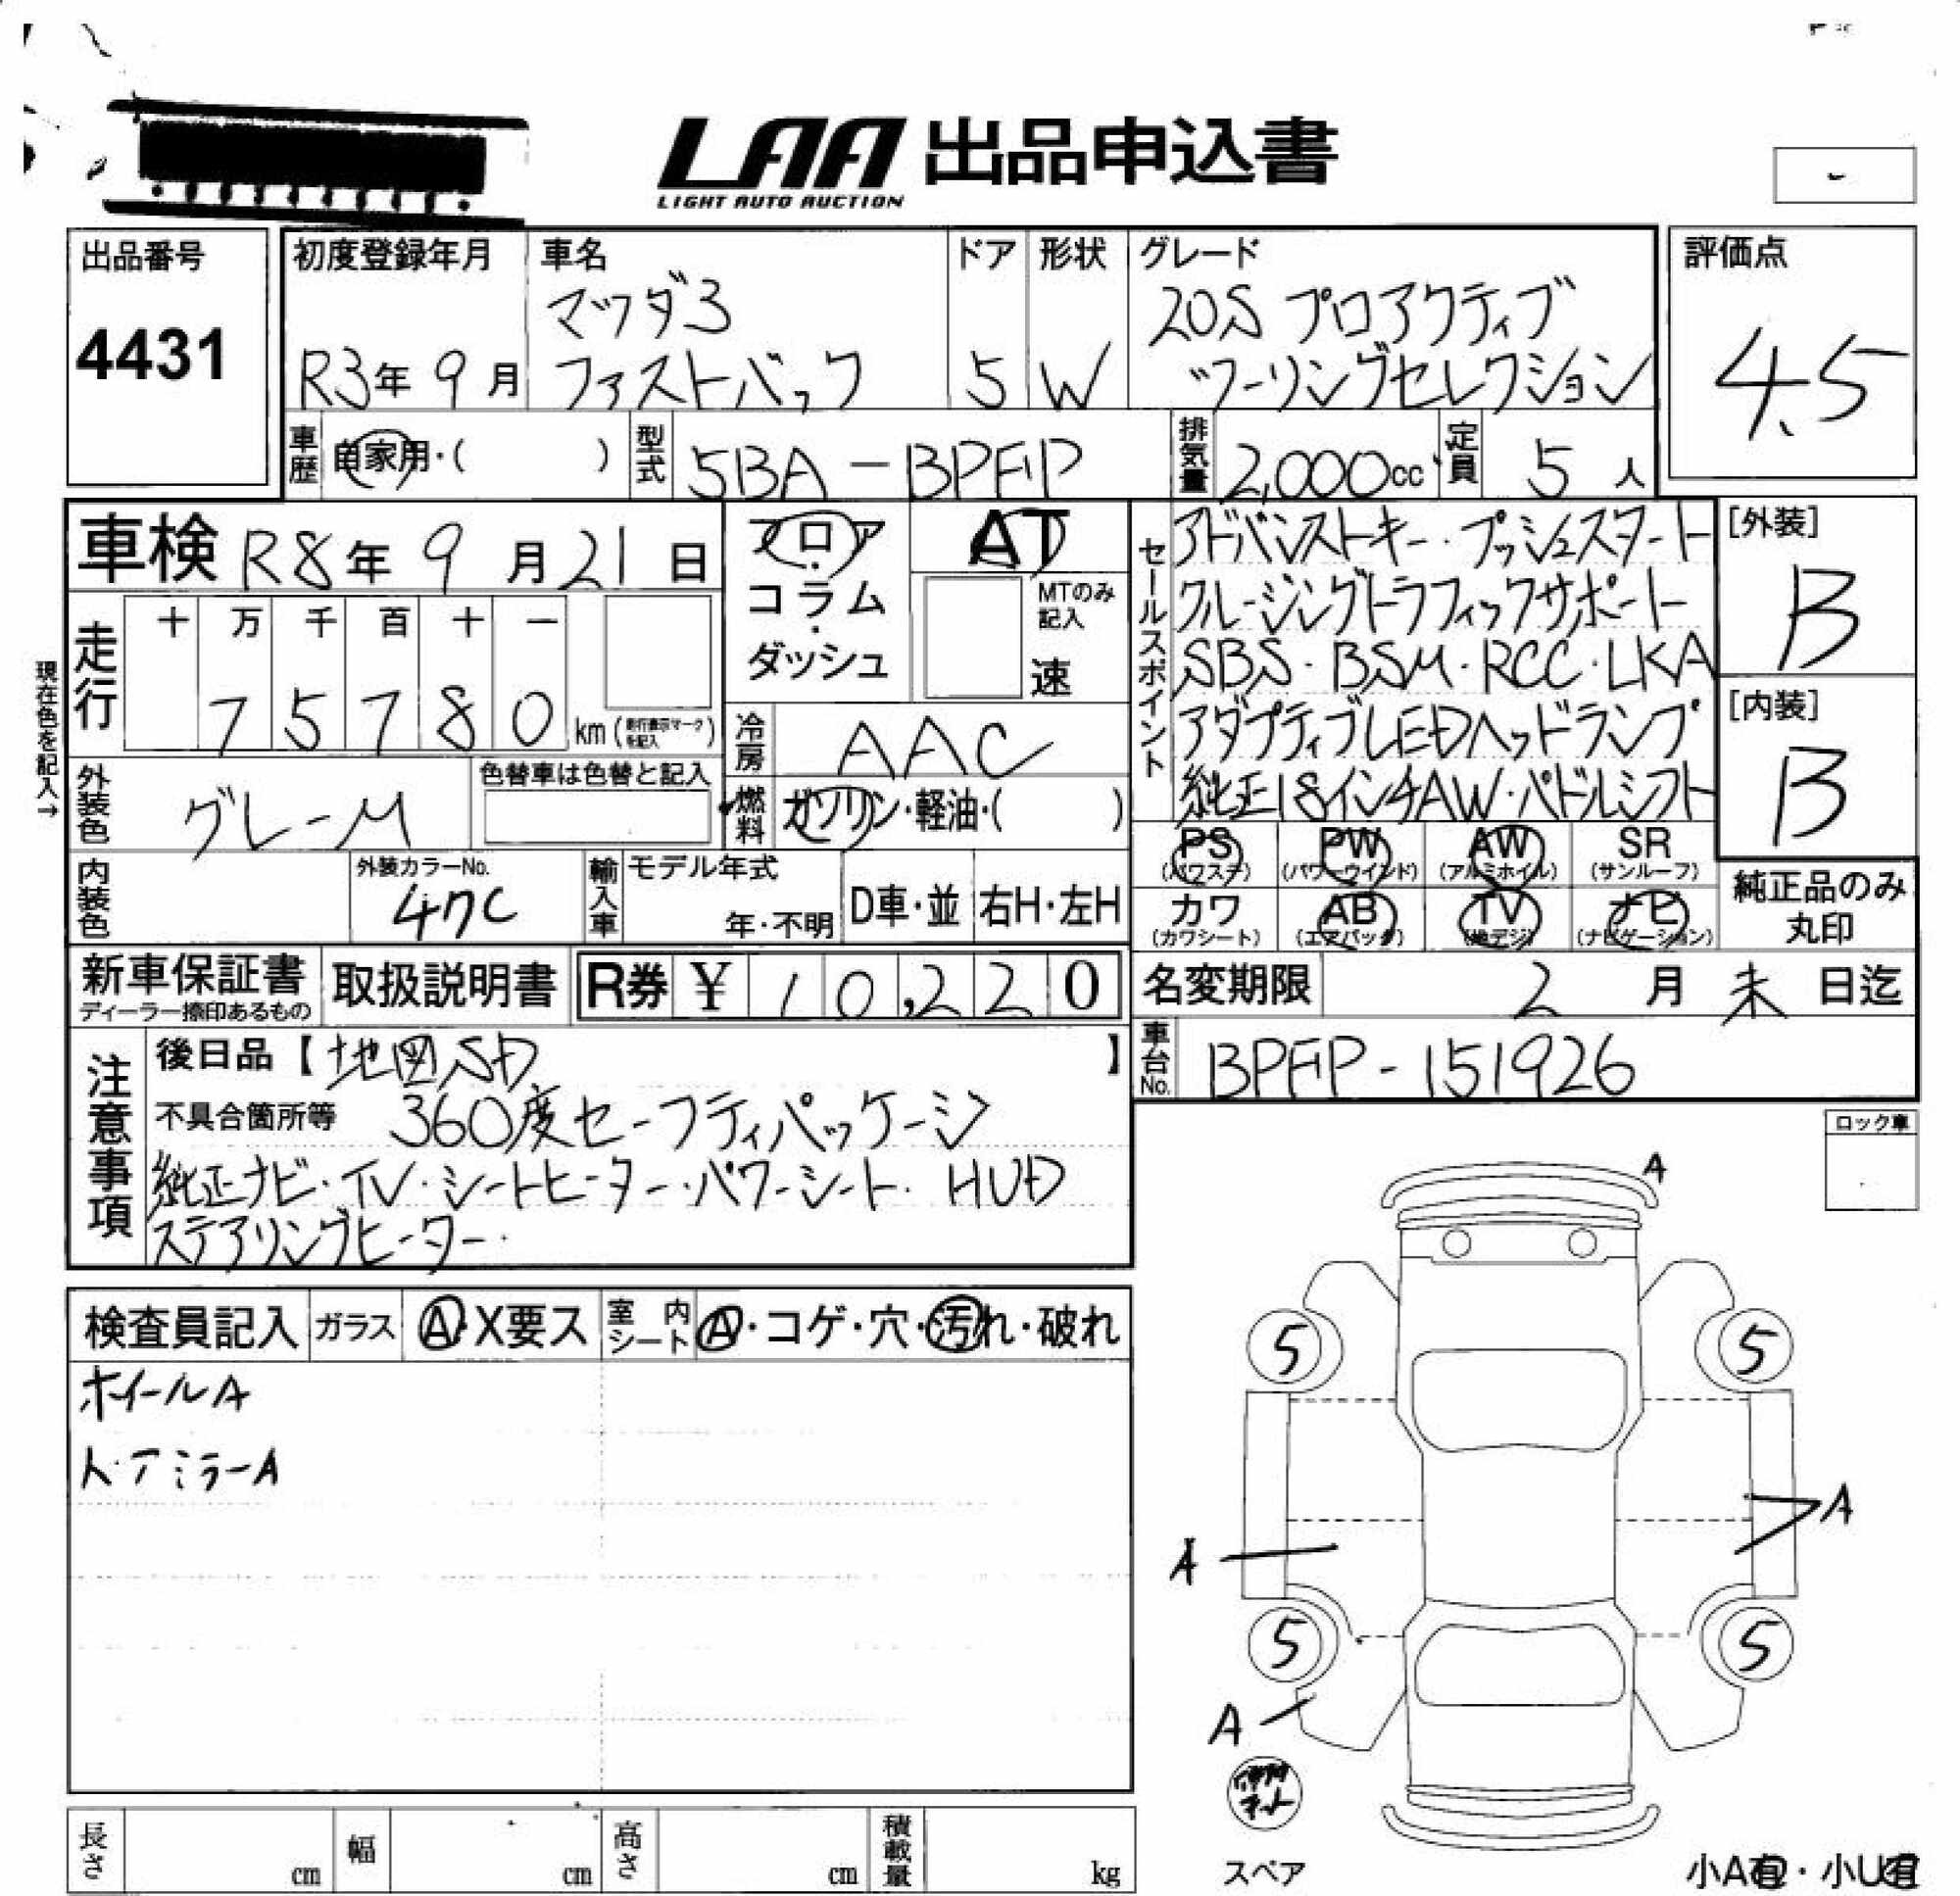 LAA 出品申込書
LIGHT AUTO AUCTION
出品番号
4431
初度登録年月
R3年9月
車名
マツダ3
ファストバック
ドア
5
形状
W
グレード
20S プロアクティブ
ツーリングセレクション
評価点
4.5
車歴
自家用・( )
型式
5BA-BPFP
排気量
2,000cc
定員
5人
車検 R8年9月21日
走行
十 万 千 百 十 一
7 5 7 8 0 km(走行表示マークを記入)
現在色を記入→
フロア・コラム・ダッシュ
AT
MTのみ記入
速
冷房
AAC
外装色
グレーM
色替車は色替と記入
燃料
ガソリン・軽油・( )
内装色
外装カラーNo.
47C
輸入車
モデル年式
年・不明
D車・並
右H・左H
セールスポイント
アドバンストキー・プッシュスタート
クルージングトラフィックサポート
SBS・BSM・RCC・LKA
アダプティブLEDヘッドランプ
純正18インチAW・パドルシフト
[外装]
B
[内装]
B
PS
(パワステ)
PW
(パワーウインド)
AW
(アルミホイル)
SR
(サンルーフ)
カワ
(カワシート)
AB
(エアバッグ)
TV
(地デジ)
ナビ
(ナビゲーション)
純正品のみ
丸印
新車保証書
ディーラー捺印あるもの
取扱説明書
R券 ¥ 10,220
名変期限 2月末日迄
車台No.
BPFP-151926
注意事項
後日品【地図SD】
不具合箇所等 360度セーフティパッケージ
純正ナビ・TV・シートヒーター・パワーシート・HUD
ステアリングヒーター・
ロック車
検査員記入
ガラス
A・X要ス
室内シート
A・コゲ・穴・汚れ・破れ
ホイールA
ドアミラーA
A
5
5
A
A
5
5
A
スペア
長さ cm
幅 cm
高さ cm
積載量 kg
小A有・小U有